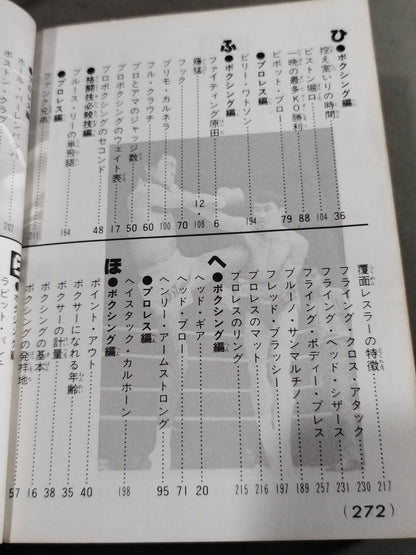 ひ
●ボクシング編
控え室いりの時間 36
ピストン堀口 104
一晩の最多KO勝利 88
ピボット・ブロー 79
●プロレス編
ビリー・ワトソン 194
ふ
●ボクシング編
ファイティング原田 6
藤猛 12・108
フック 70
プリモ・カルネラ 100
フル・クラウチ 60
プロとアマのジャッジ数 50
プロボクシングのウェイト表 17
プロボクシングのセコンド 48
●格闘技必殺技編
ブルース・リーの単飛腿 164
●プロレス編
ファンク兄弟 211
覆面レスラーの特徴 217
フライング・クロス・アタック 230
フライング・ヘッド・シザース 231
フライング・ボディー・プレス 257
ブルーノ・サンマルチノ 189
フレッド・ブラッシー 197
プロレスのマット 216
プロレスのリング 215
へ
●ボクシング編
ヘッド・ギア 20
ヘッド・ブロー 71
ヘンリー・アームストロング 95
●プロレス編
ヘイスタック・カルホーン 198
ほ
●ボクシング編
ポイント・アウト 40
ボクサーになれる年齢 35
ボクサーの計量 38
ボクシングの基本 16
ボクシングの発祥地 57
ボストン・クラブ 202
(272)